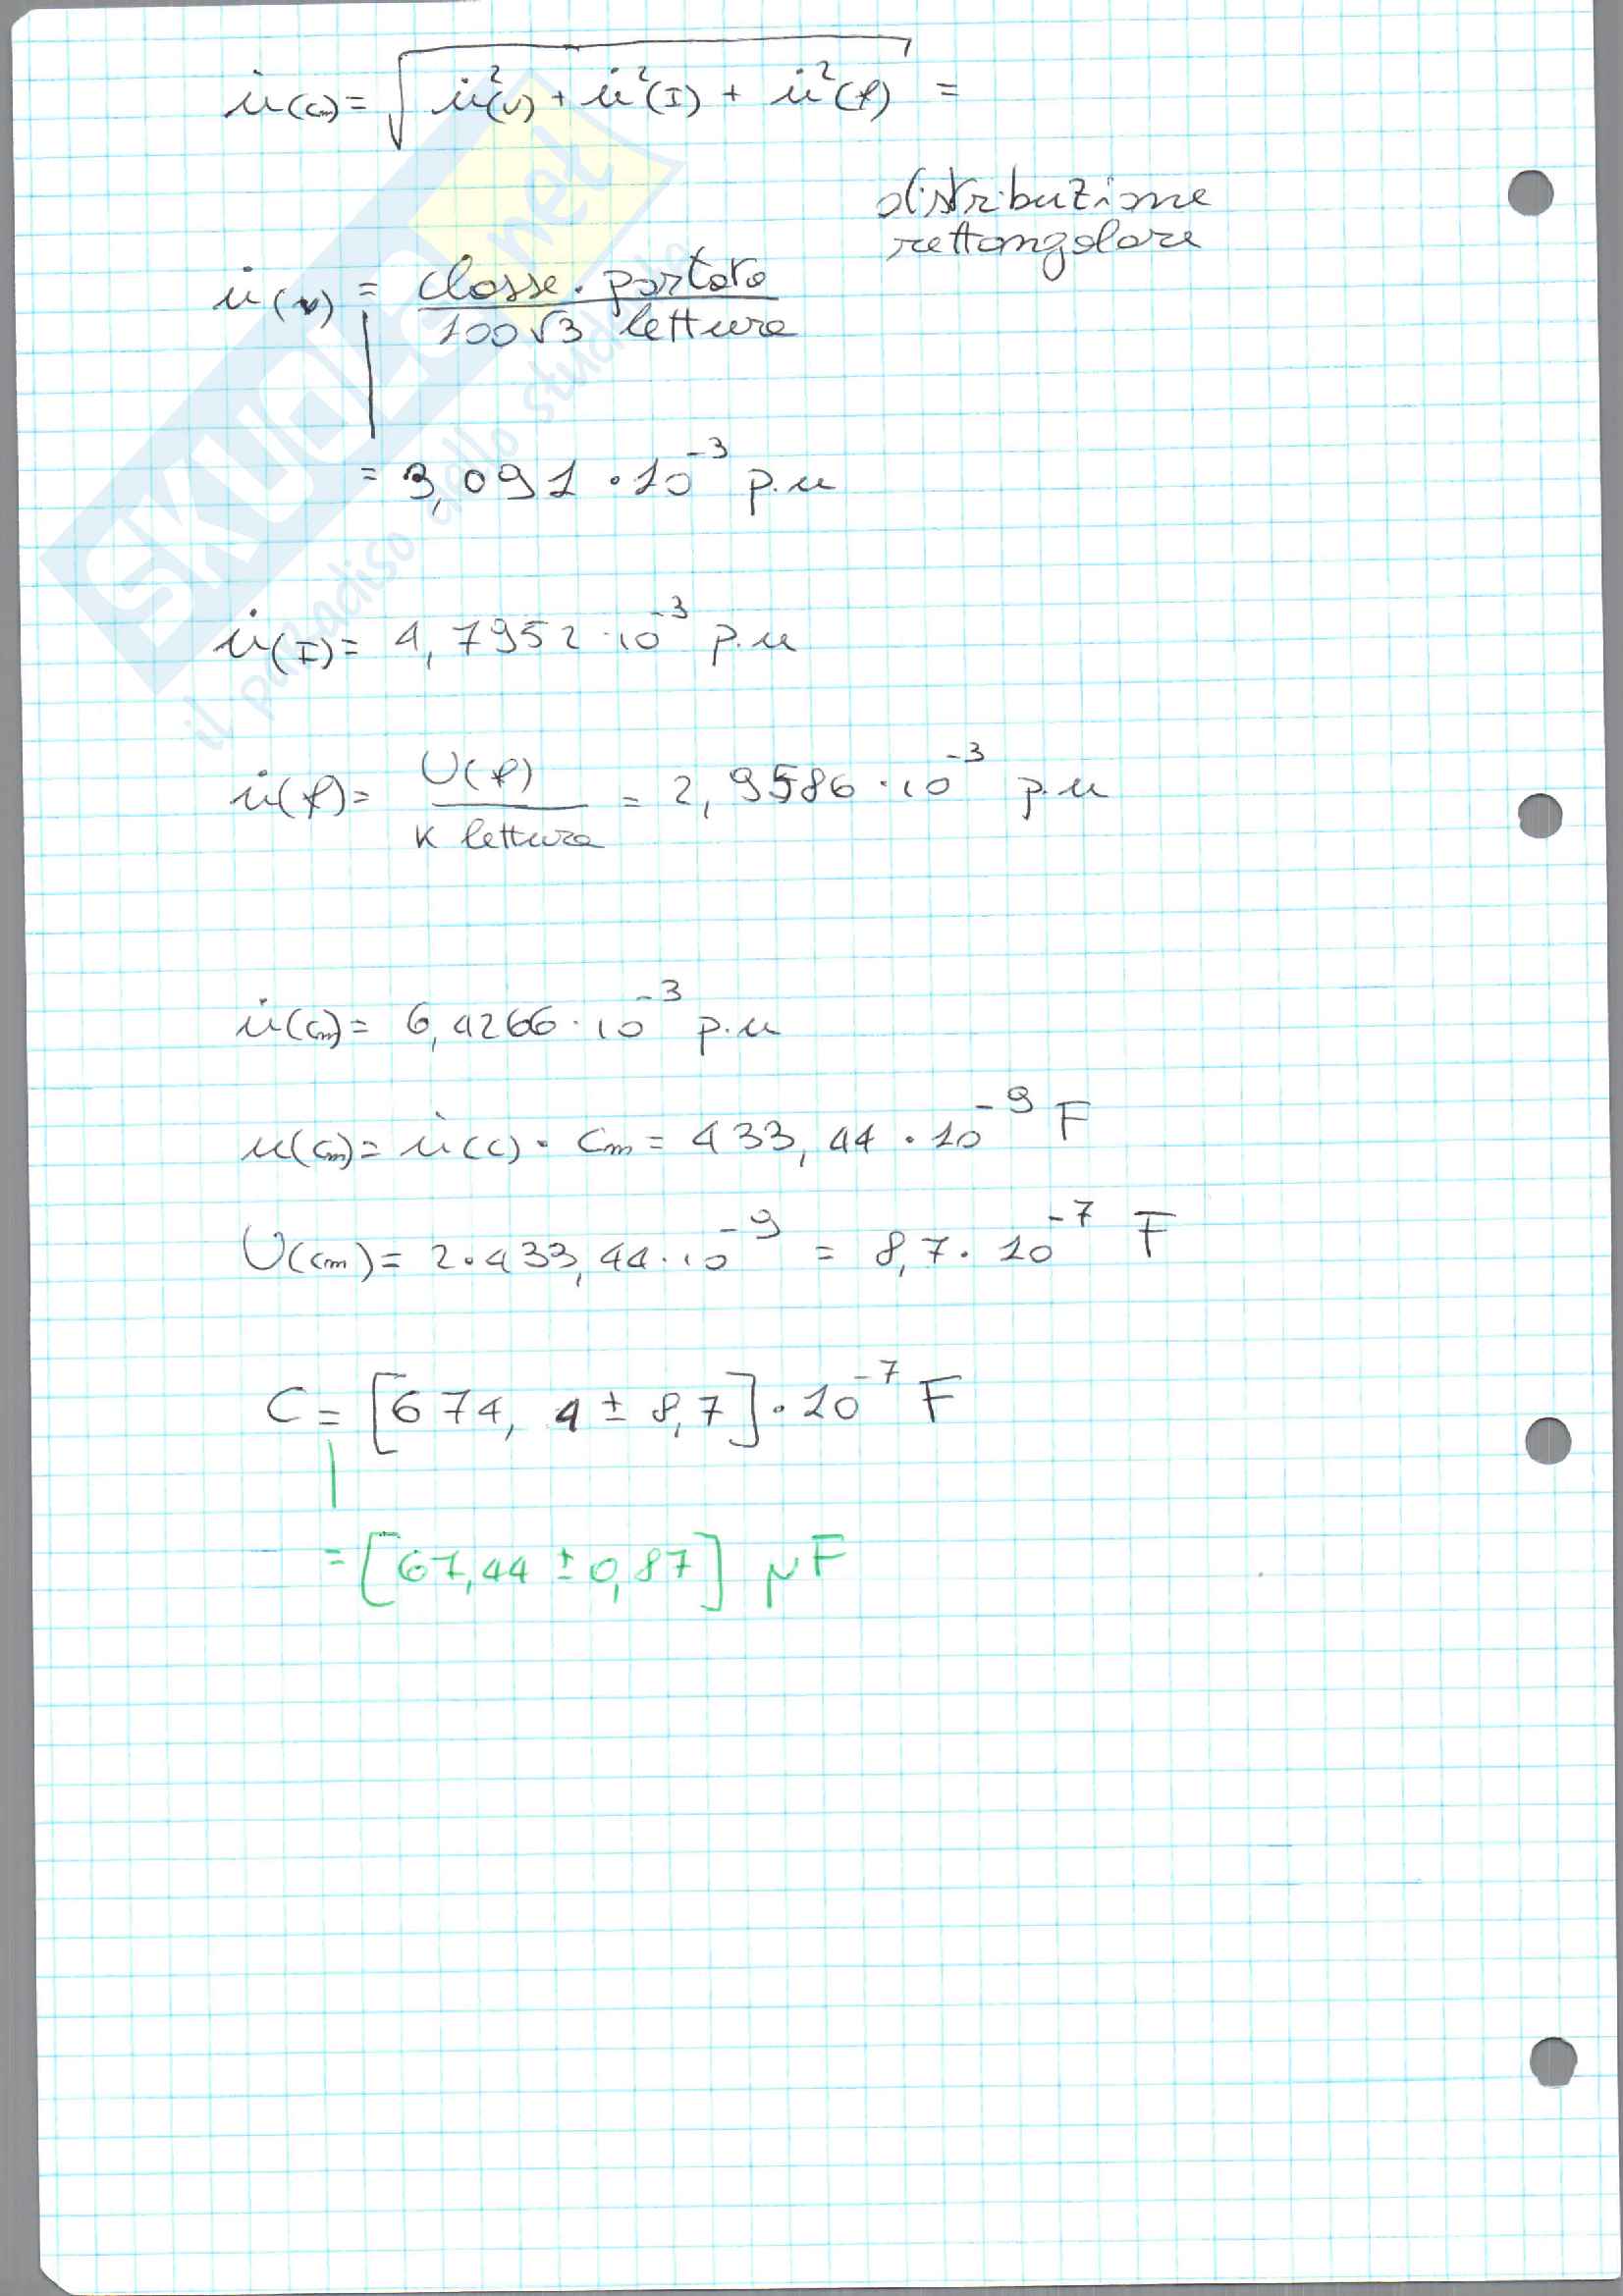 u̇(Cm) = √(u̇²(V) + u̇²(I) + u̇²(f)) =
distribuzione
rettangolare
u̇(V) = classe · portata / 100√3 lettura
= 3,091 · 10⁻³ p.u
u̇(I) = 4,7952 · 10⁻³ p.u
u̇(f) = U(f) / K lettura = 2,9586 · 10⁻³ p.u
u̇(Cm) = 6,4266 · 10⁻³ p.u
u(Cm) = u̇(C) · Cm = 433,44 · 10⁻⁹ F
U(Cm) = 2 · 433,44 · 10⁻⁹ = 8,7 · 10⁻⁷ F
C = [674,4 ± 8,7] · 10⁻⁷ F
= [67,44 ± 0,87] μF
SKUOLA.net
il paradiso dello studente